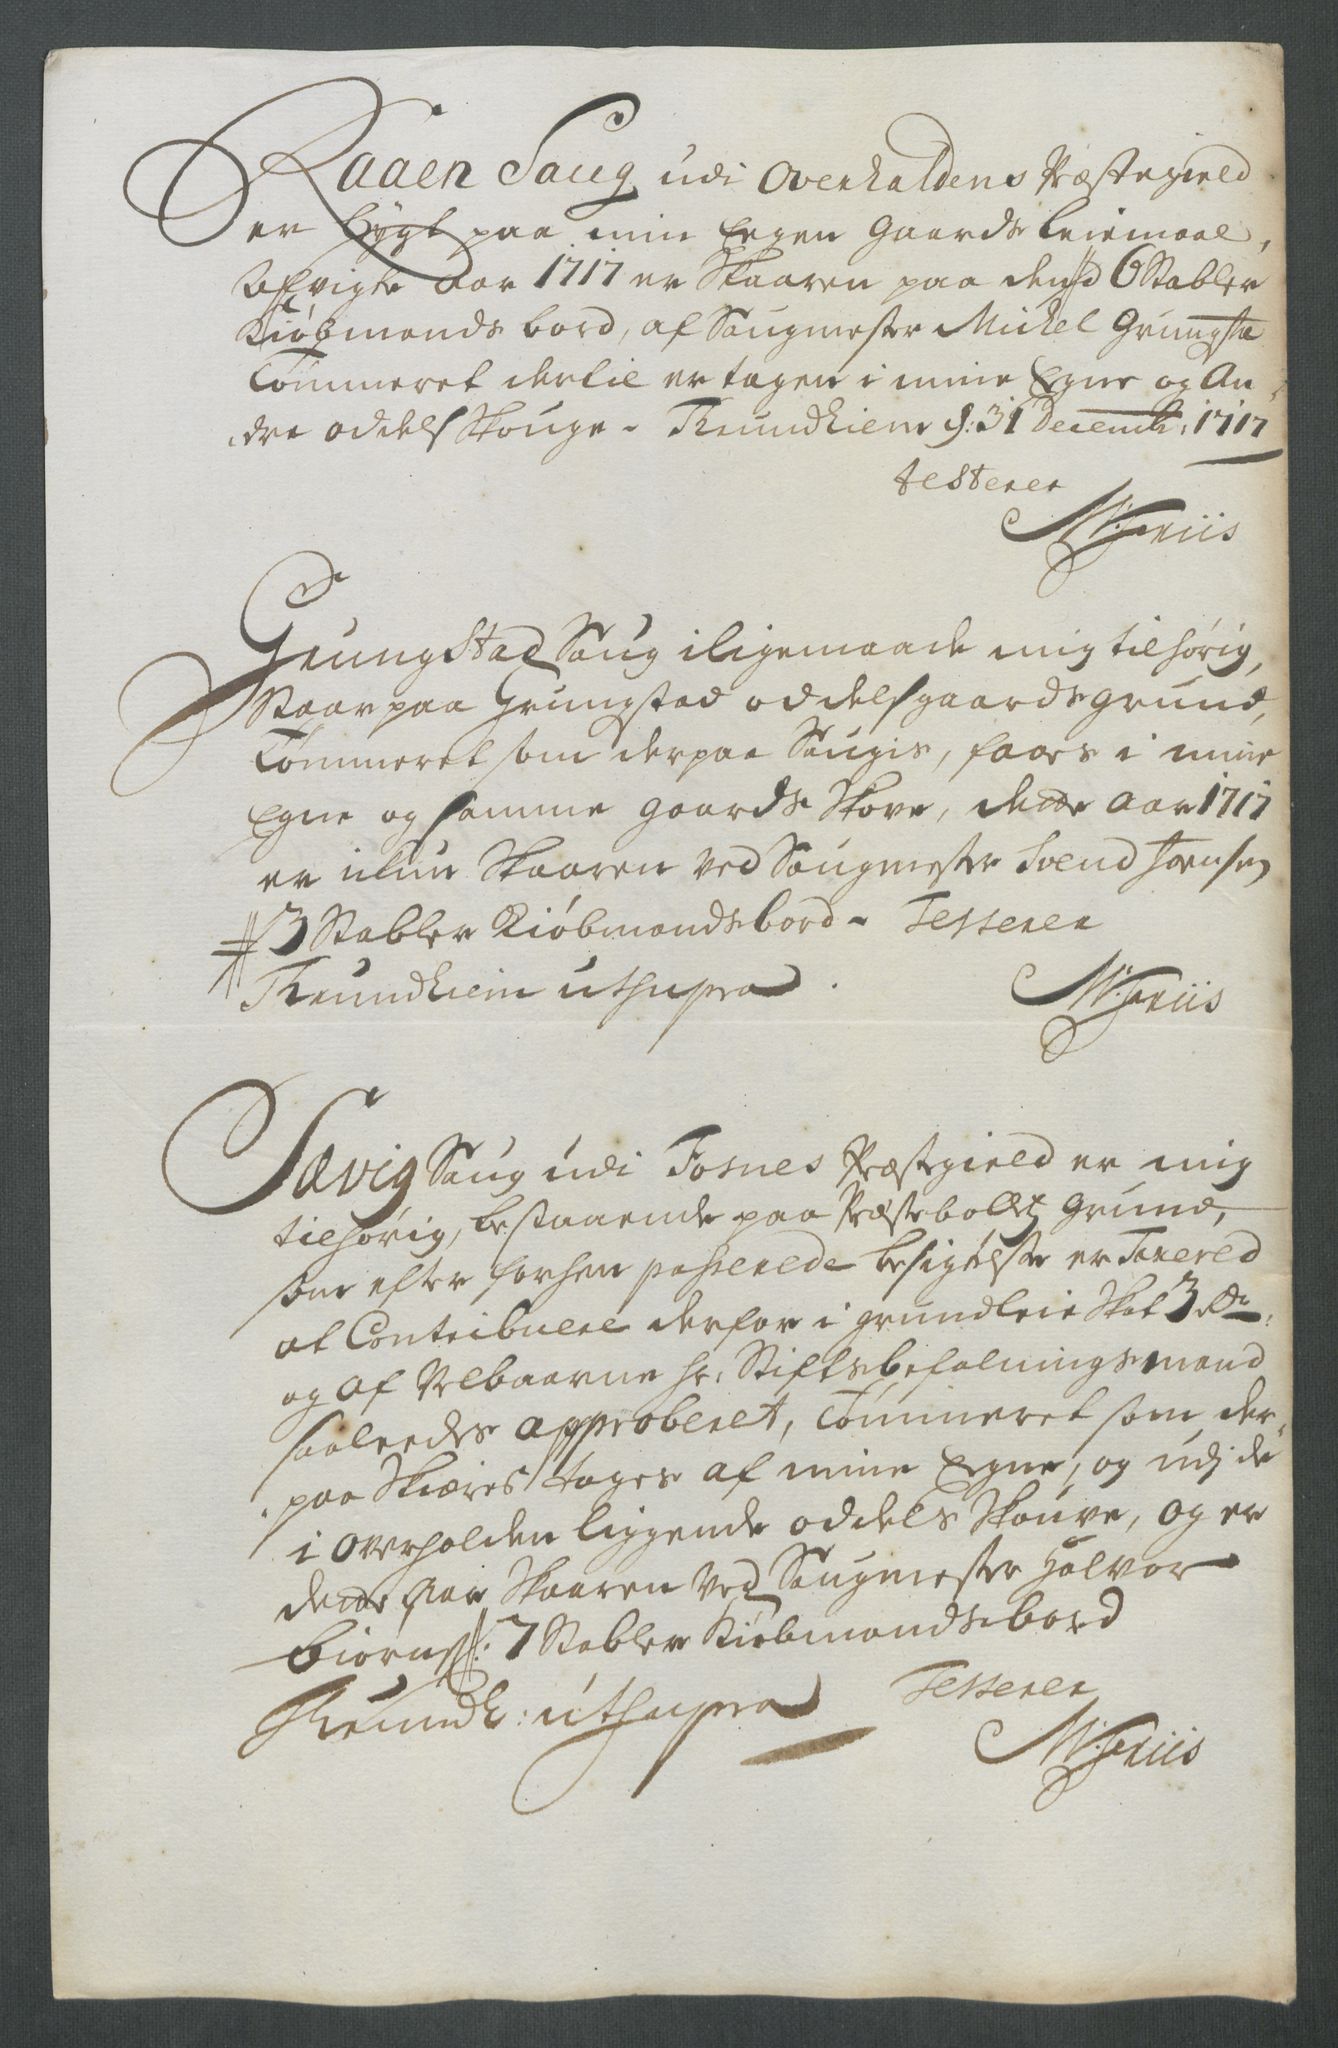 Raaen Saug udi Overhaldens Præstegield
er bygt paa min Eegen Gaards leiemaal,
Afvigte Aar 1717 er Skaaren paa dend 6 Stabler
Kiøbmands bord, af Saugmester Michel Grungsta
Tømmeret dertil er tagen i mine Egne og An
dre oddels Skouge - Trundhiem d: 31 Decemb: 1717
testerer
M: Friis
Grungstad Saug iligemaade mig tilhørig,
Staar paa Grungstad oddelsgaards grund,
Tømmeret som derpaa Saugis, faaes i mine
Egne og samme gaards Skove, dette Aar 1717
er ikun Skaaren ved Saugmester Svend Joensen
3 Stabler Kiøbmandsbord - Testerer
Trundhiem ut supra.
M: Friis
Sævig Saug udi Fosnes Præstegield er mig
tilhørig, bestaaende paa Præstebolets Grund,
som efter forhen passerede besigtelse er Taxered
at Contribuere derfor i grundleie Skat 3 rdr:
og af Velbaarne hr: Stiftsbefalningsmand
saaleedes approberet, Tømmeret som der
paa Skiæres tages af mine Egne, og udj de
i Overhalden liggende oddels Skouve, og er
dette Aar Skaaren ved Saugmester Halvor
Biørns: 7 Stabler Kiøbmandsbord
Trundh: ut supra
Testerer
M: Friis